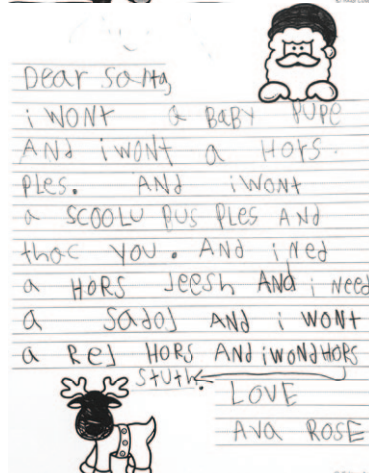 Dear Santa
i WONt a BaBY PUPe
ANd iWONt a HOrS.
PLeS. ANd iWONt
a SCOOLU BUS PLES ANd
thac YOU. ANd iNed
a HORS Jeesh ANd i Need
a SadoJ ANd i WONt
a ReJ HORS ANd iWONd HORS
Stuth.
LOVE
AVa ROSE